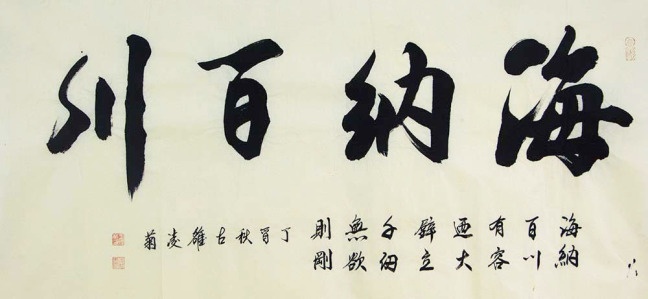 海納百川
海納
百川
有容
迺大
壁立
千仞
無欲
則剛
丁酉秋古雒凌菊